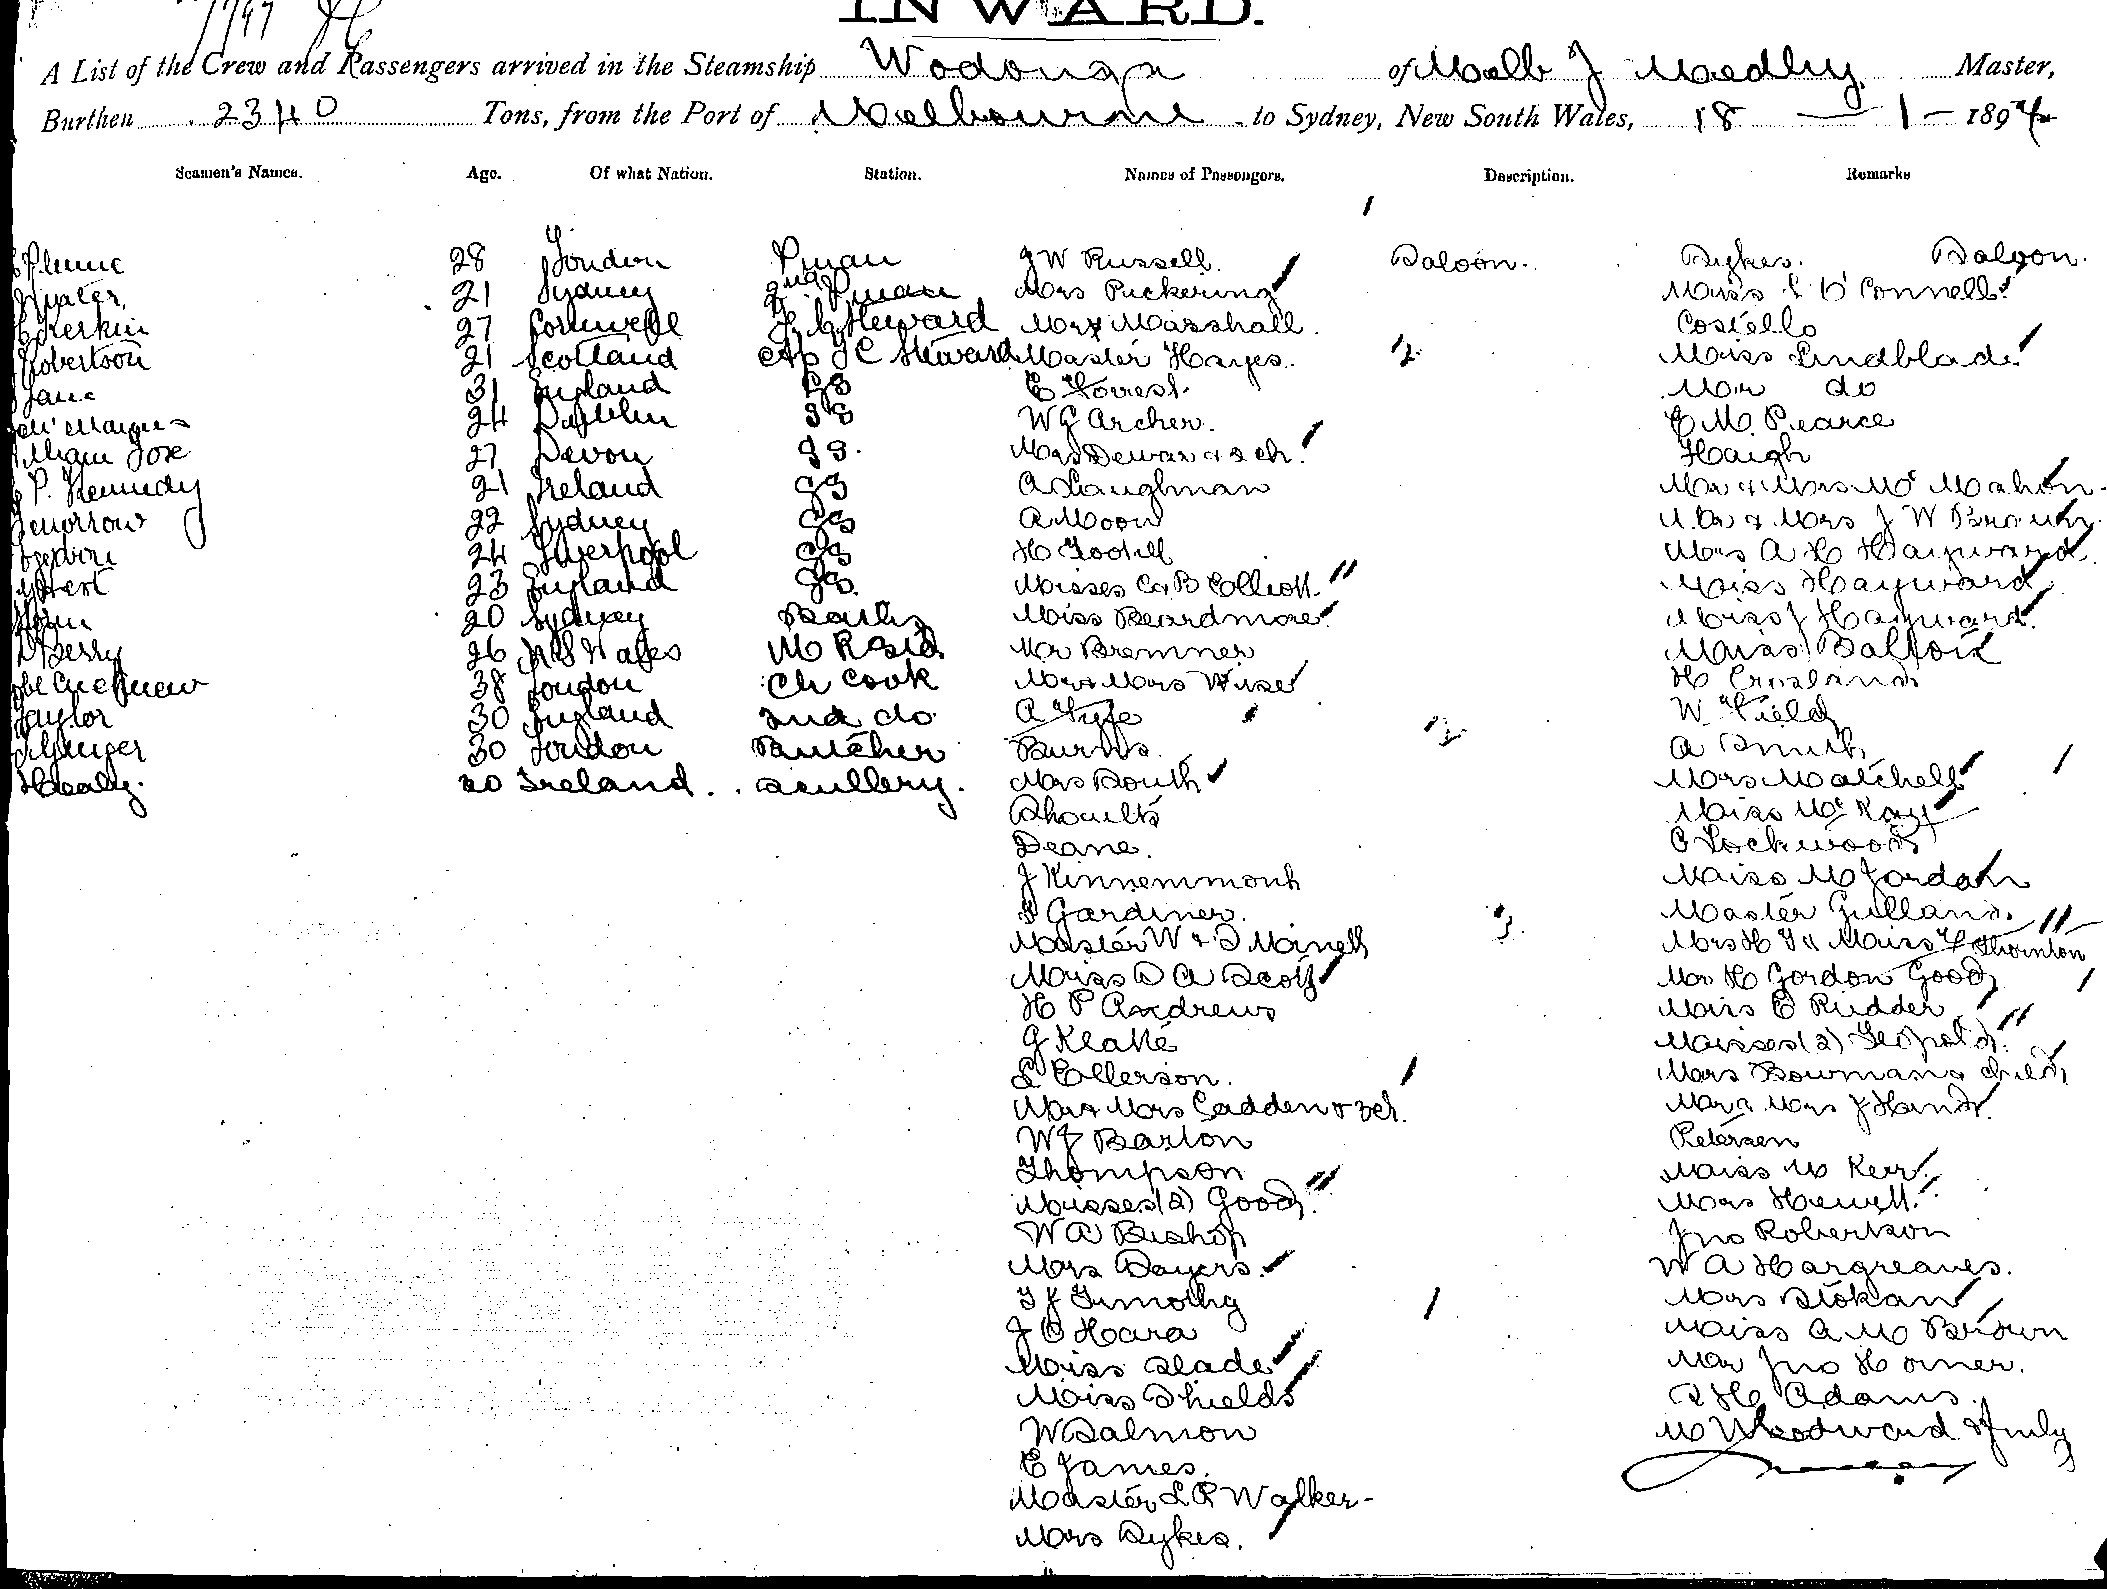 INWARD.
A List of the Crew and Passengers arrived in the Steamship Wodonga of Melb J Medley Master,
Burthen 2340 Tons, from the Port of Melbourne to Sydney, New South Wales, 18 — 1 — 1894
Seamen's Names. Age. Of what Nation. Station. Names of Passengers. Description. Remarks
28 London Pman J W Russell. Saloon. Sykes. Saloon.
21 Sydney Pman Mrs Puckering Miss O'Connell
27 Cornwall Steward Mr Marshall. Costello
Robertson 21 Scotland Steward Master Hayes. 12 Miss Lindblade
Jane 31 England GS E Forrest. Mr do
24 Dublin GS W G Archer. E M Pearce
William Jose 27 Devon GS. Mrs Dewar & 2 ch. Haigh
P. Kennedy 21 Ireland GS A Laughman Mr & Mrs Mc Mahon.
Tenorrow 22 Sydney GS A Moon Mr & Mrs J W Brown
24 Liverpool GS H Tootell Mrs A H Hayward
23 England GS. Misses C & B Elliott. Miss Hayward
20 Sydney Misses Beardmore Miss J Hayward.
Berry 26 N S Wales Mr Bremner Miss Balfour
38 London Ch Cook Mr & Mrs Wise H Crosland
Taylor 30 England 2nd do A Fyfe W Field
30 London Butcher Burns. A Smith
Healy. 20 Ireland. Scullery. Mrs South Mrs Matchell
Shoults Miss Mc Kay
Deane. C Lockwood
J Kinnemmonh Miss M Jordan
Gardiner. Master Gulland.
Master W & D Minell Mrs H F & Miss F Thornton
Miss D A Scott Mr H Gordon Good
H P Andrews Miss E Rudder
G Klatte Misses (2) Leopold.
L Ellerson. Mrs Bowman & child
Mr & Mrs Cadden & 3 ch. Mr & Mrs J Hand
W J Barton Petersen
Thompson Miss M Kerr
Misses (2) Good. Mrs Hewett.
W A Bishop Jno Robertson
Mrs Sayers. W A Hargreaves.
T J Timothy Mrs Stokan
J O Hara Miss A M Brown
Miss Slade Mr Jno Horner.
Miss Shields S H Adams.
W Salmon M Woodward & fmly
E James.
Master L R Walker
Mrs Sykes.